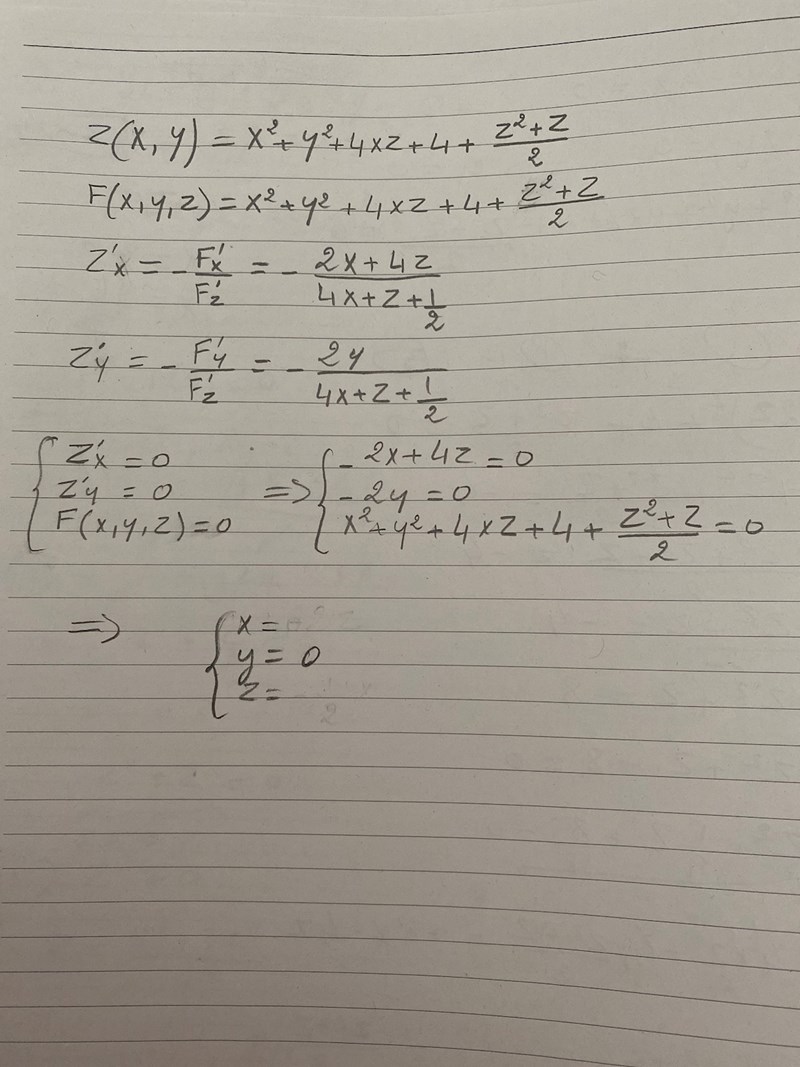 Z(x, y) = x² + y² + 4xz + 4 + (z² + z)/2
F(x, y, z) = x² + y² + 4xz + 4 + (z² + z)/2
Z'x = - F'x/F'z = - (2x + 4z)/(4x + z + 1/2)
Z'y = - F'y/F'z = - 2y/(4x + z + 1/2)
{ Z'x = 0 => { - 2x + 4z = 0
Z'y = 0 - 2y = 0
F(x, y, z) = 0 x² + y² + 4xz + 4 + (z² + z)/2 = 0
=> { x =
y = 0
z =